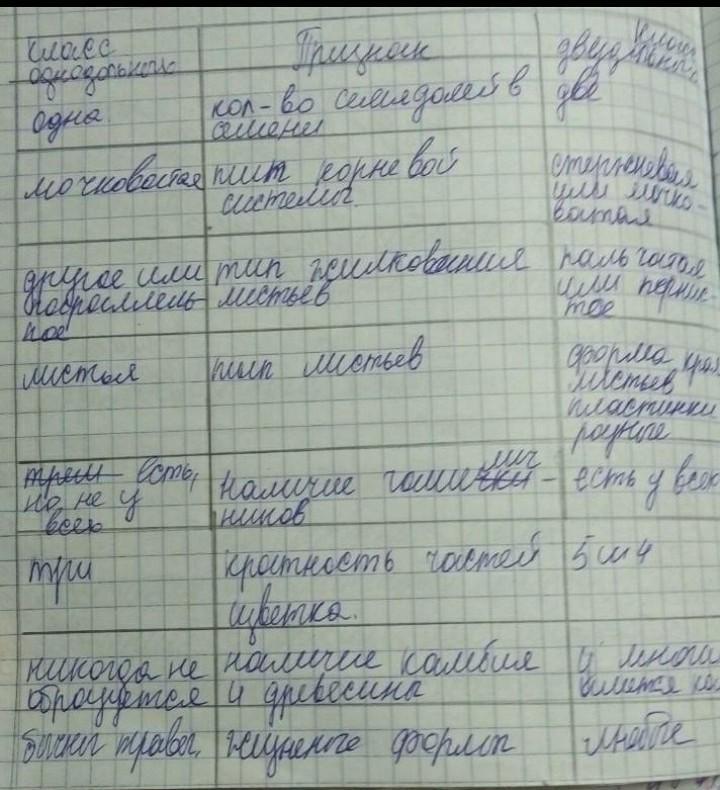 класс однодольного Признак класс двудольного
одна кол-во семядолей в семени две
мочковатая тип корневой системы стержневая или мочковатая
другое или параллельное тип жилкования листьев пальчатая или перистое
листья тип листьев форма края листьев пластинки разные
есть, но не у всех наличие чашелистников есть у всех
три кратность частей цветка. 5 и 4
никогда не образуется наличие камбия и древесина у многих имеется
травы жизненые формы любые